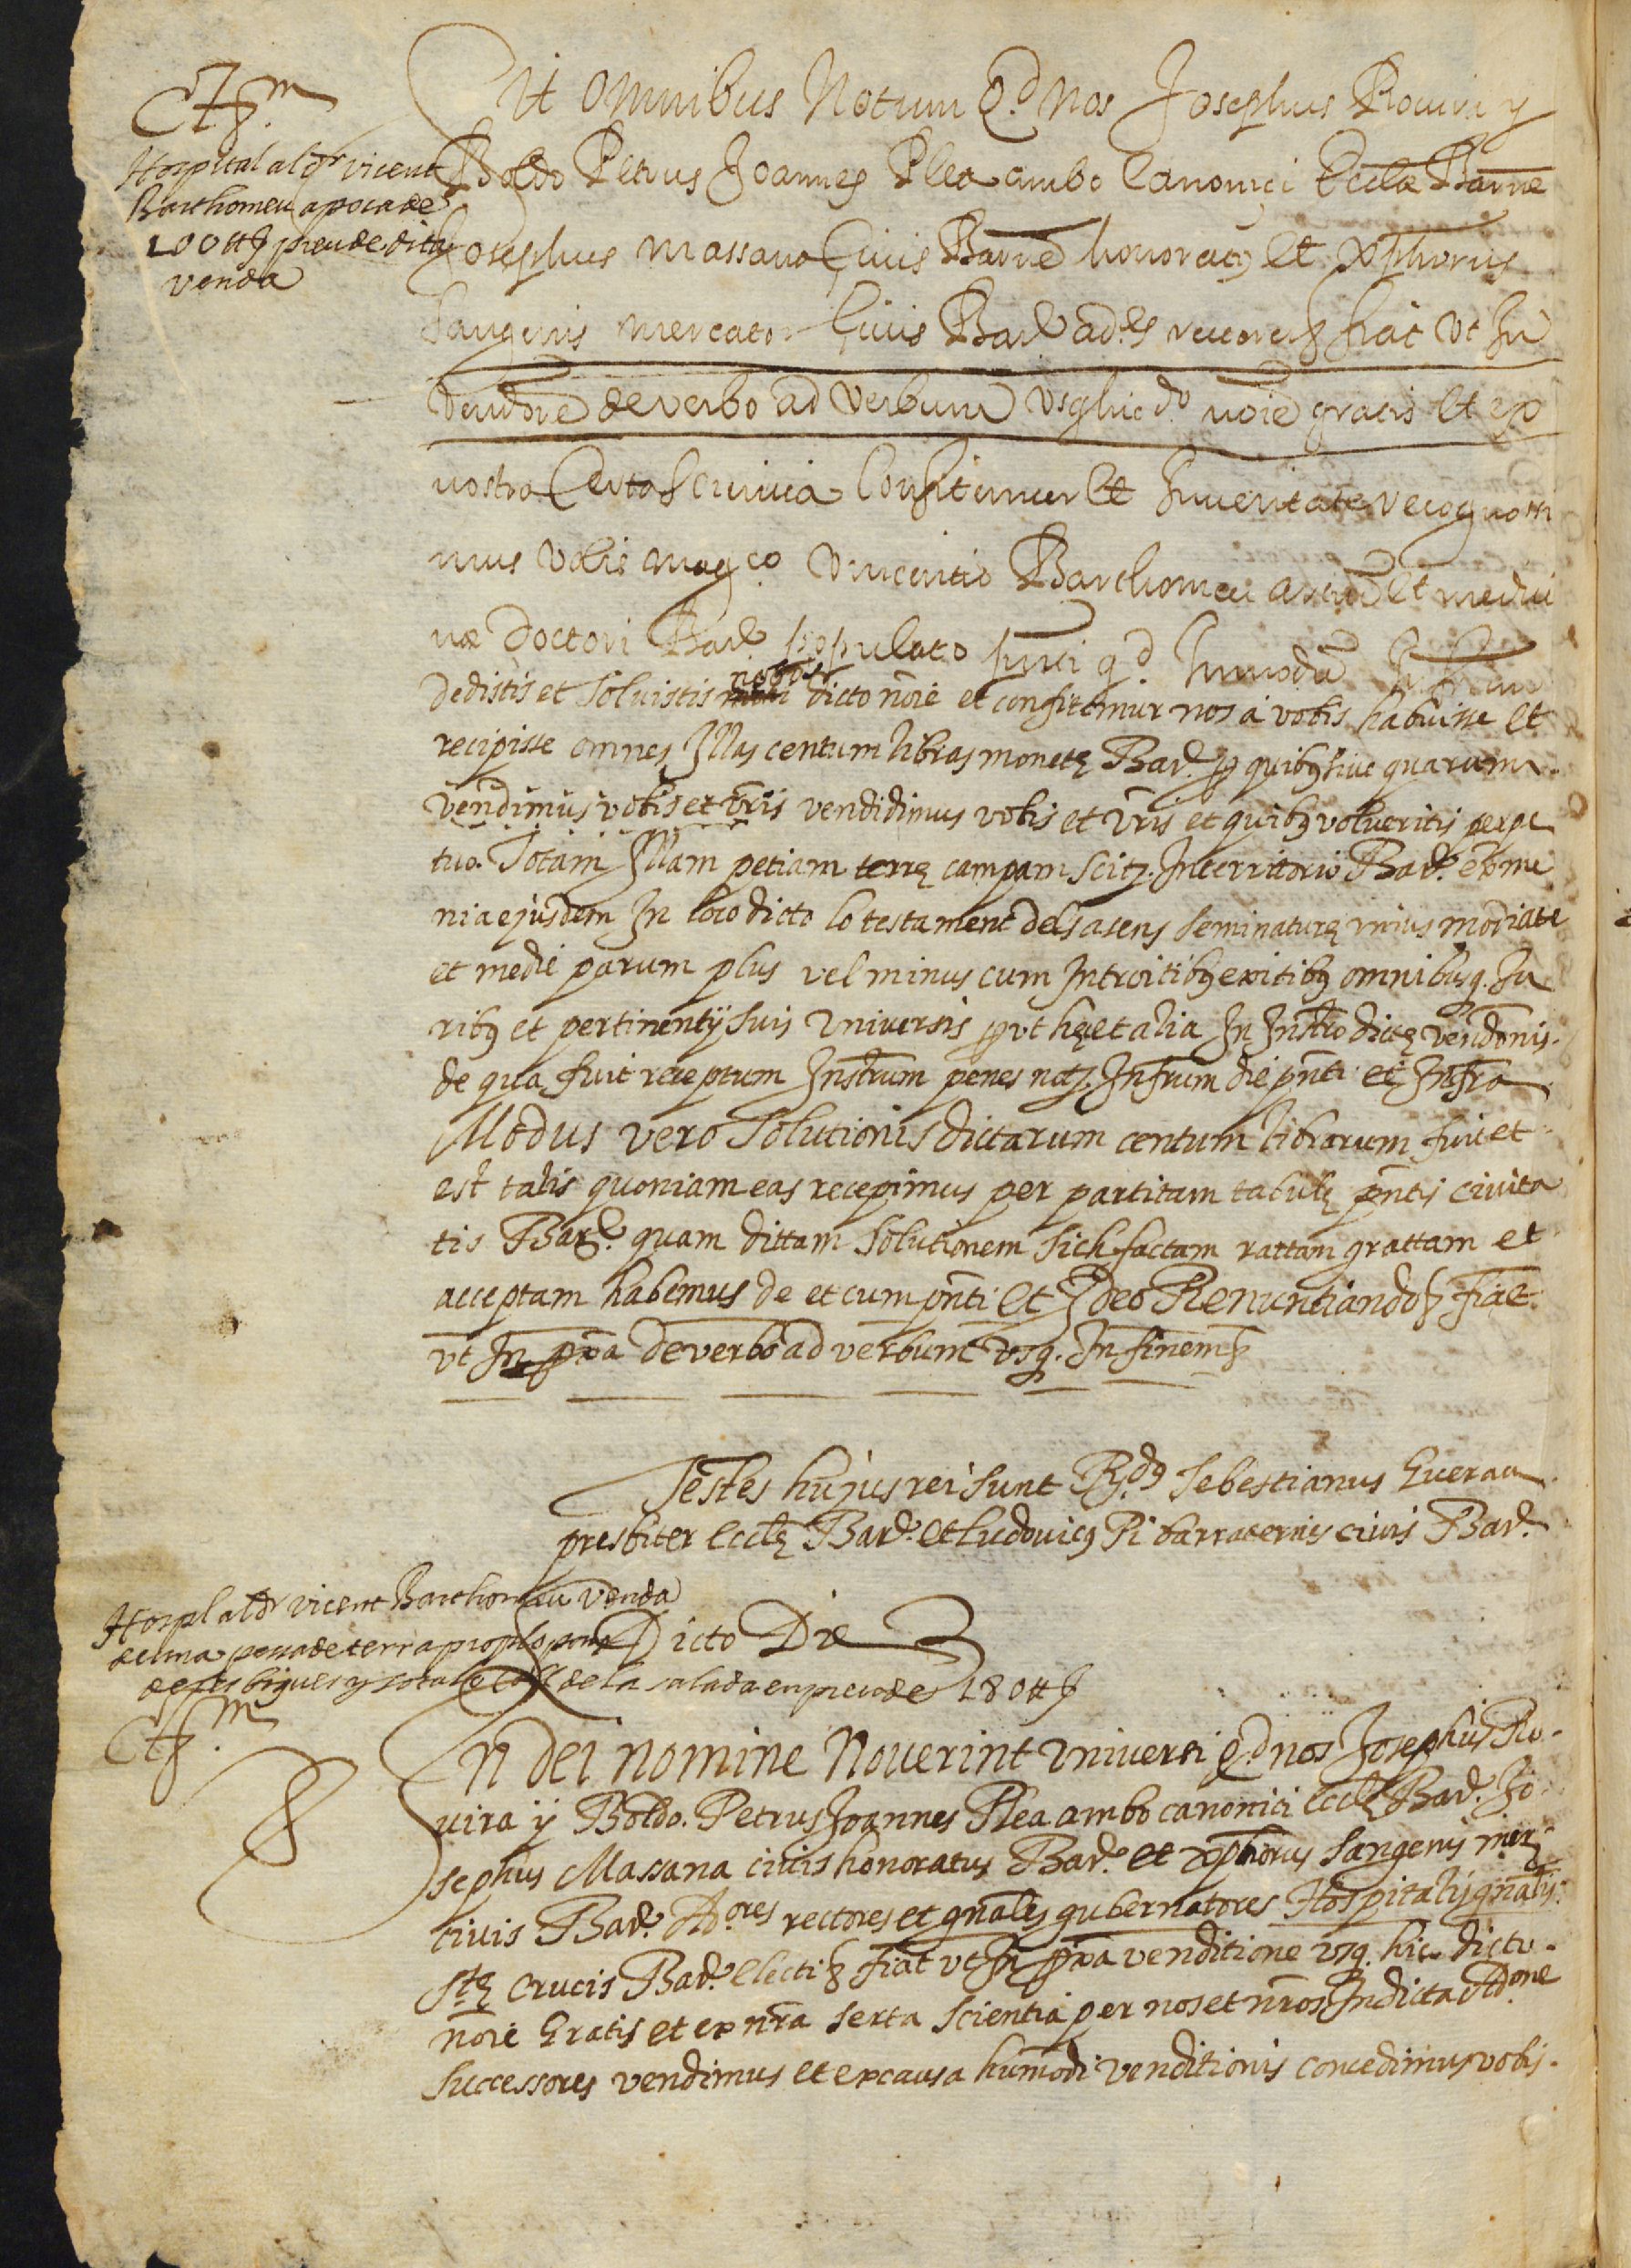 Hospital al dr vicent
Barthomeu apoca de
100 ₶ § preu de dita
venda
Sit omnibus Notum Qd. nos Josephus Rovira y
Boldo Petrus Joannes Plea ambo Canonici Eccłæ Barne
Josephus Massana Civis Barne honoratꝯ et xpħorus
Sangenis mercator Civis Bar. ad.es rectores § fiat vt In
vendōne de verbo ad verbum vsq hic d.o noīe gratis et ex
nostra Certa Scientia Confitemur et Inveritate recognosci
mus vobis magco. Vincentio Barthomeu artiū et medici
næ Doctori Bar. populato pnti qd. Inmodū Infrum
dedistis et solvistis nobis dicto nōie et confitemur nos á vobis habuisse et
recipisse omnes Illas centum libras monetę Bar. ꝓ quibꝯ sive quarum.
vendimus vobis et vr̄is vendidimus vobis et vr̄is et quibꝯ volveritis perpe
tuo. Totam Illam petiam terrę campam scitꝫ. Interritorio Bar. ex me
nia ejusdem In loco dicto lo testament dels asens seminaturę vnius modiate
et medie parum plus vel minus cum Introitibꝯ exitibꝯ omnibusq. Ju
ribꝯ et pertinentijs suis Universis ꝓvt hęc et alia In Instro dictę vendōnis.
de qua fuit receptum Instrum penes notꝫ. Infrum die pn̄ti et Infra
Modus vero solutionis dictarum centum librarum fuit et
est talis quoniam eas recepimus per partitam tabulę pn̄tis civita
tis Bar. quam dittam solutionem sich factam rattam grattam et
acceptam habemus de et cum pn̄ti et Ideo Renuntiando § fiat.
vt In pxa de verbo ad verbum vsq. In finem §
Testes hujus rei sunt Rdꝯ Sebestianus
presbiter Ecclę Bar. et Ludovicꝯ Pi civis Bar.
Hospl al dr vicent Barthomeu venda
de una pessa de terra prop lo pont
de les bigues y sota lo coll de la salada en preu de 180 ₶ §
Dicto Die
In dei nomine Noverint Universi Qd. nos Josephus Ro
vira ÿ Boldo. Petrus Joannes Plea ambo canonici Ecclę Bar. Jo
sephus Massana civis honoratus Bar. et xpħorus Sangenis mer
civis Bar. Ad.ores rectores et gn̄ales gubernatores Hospitalis gn̄alis
Stę Crucis Bar. electi § fiat vt In pxa venditione vsq. hic dicto.
nōie Gratis et ex nr̄a serta scientia per nos et nr̄os In dicta Ad.one
successores vendimus et ex causa humodi venditionis concedimus vobis.